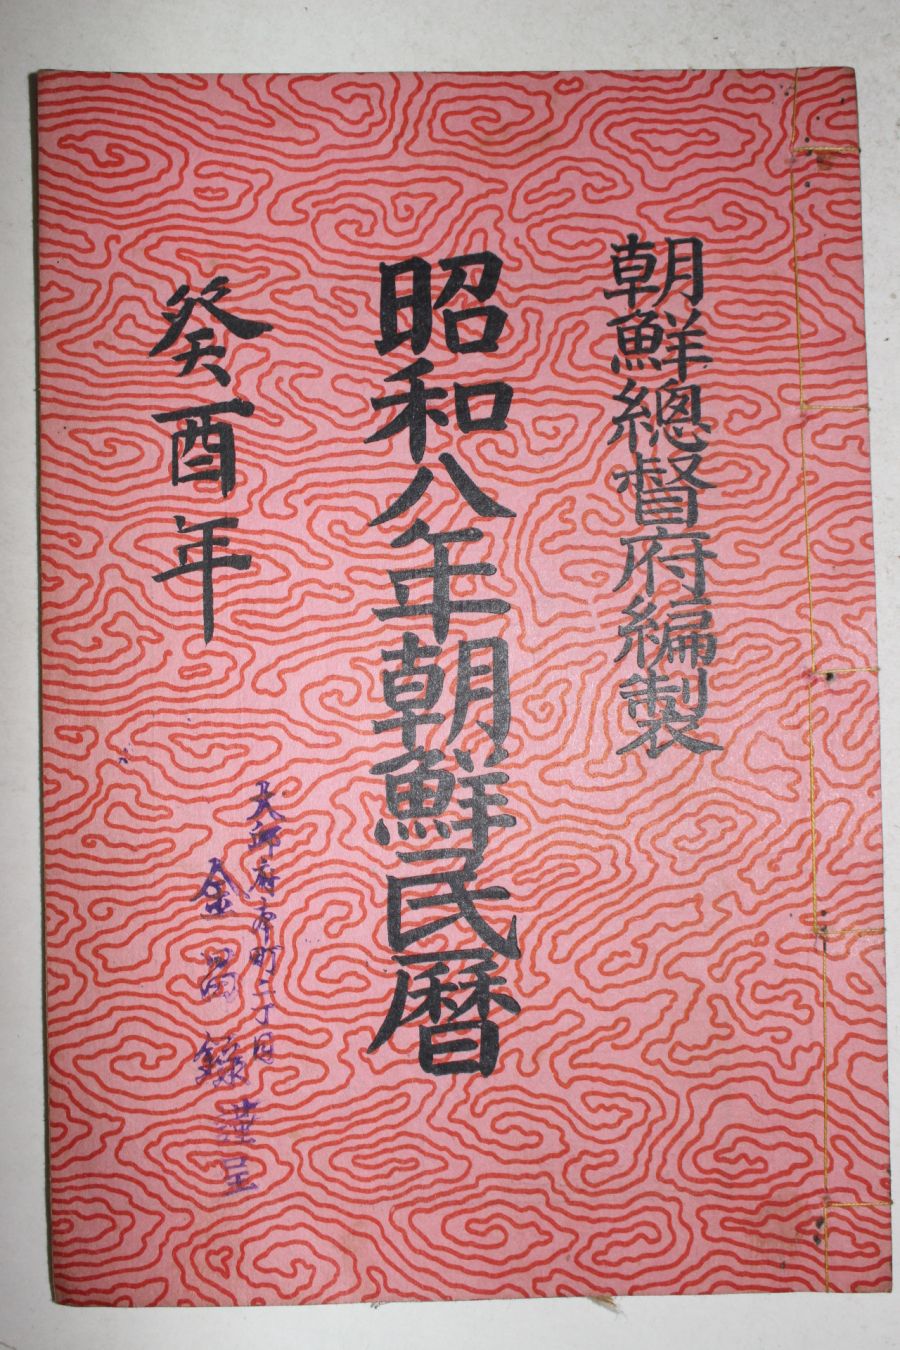 朝鮮總督府編製
昭和八年朝鮮民曆
癸酉年
大邱府幸町二丁目
金昌錄 謹呈